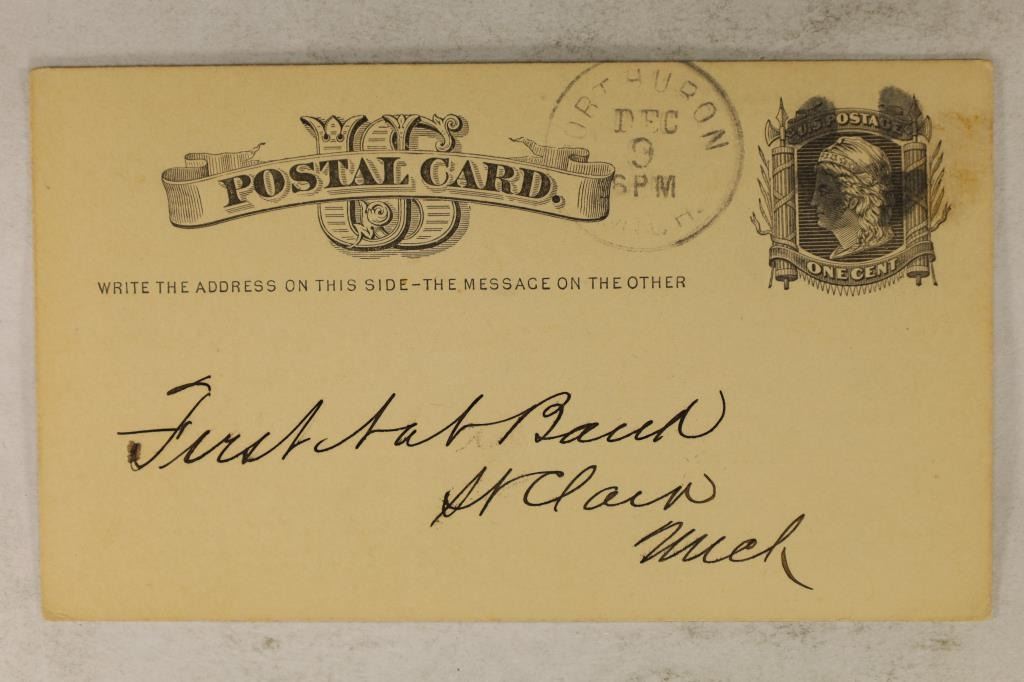 PORT HURON
DEC
9
6 PM
MICH.
U.S. POSTAGE
US
POSTAL CARD.
ONE CENT
WRITE THE ADDRESS ON THIS SIDE–THE MESSAGE ON THE OTHER
First Nat Bank
St Clair
Mich